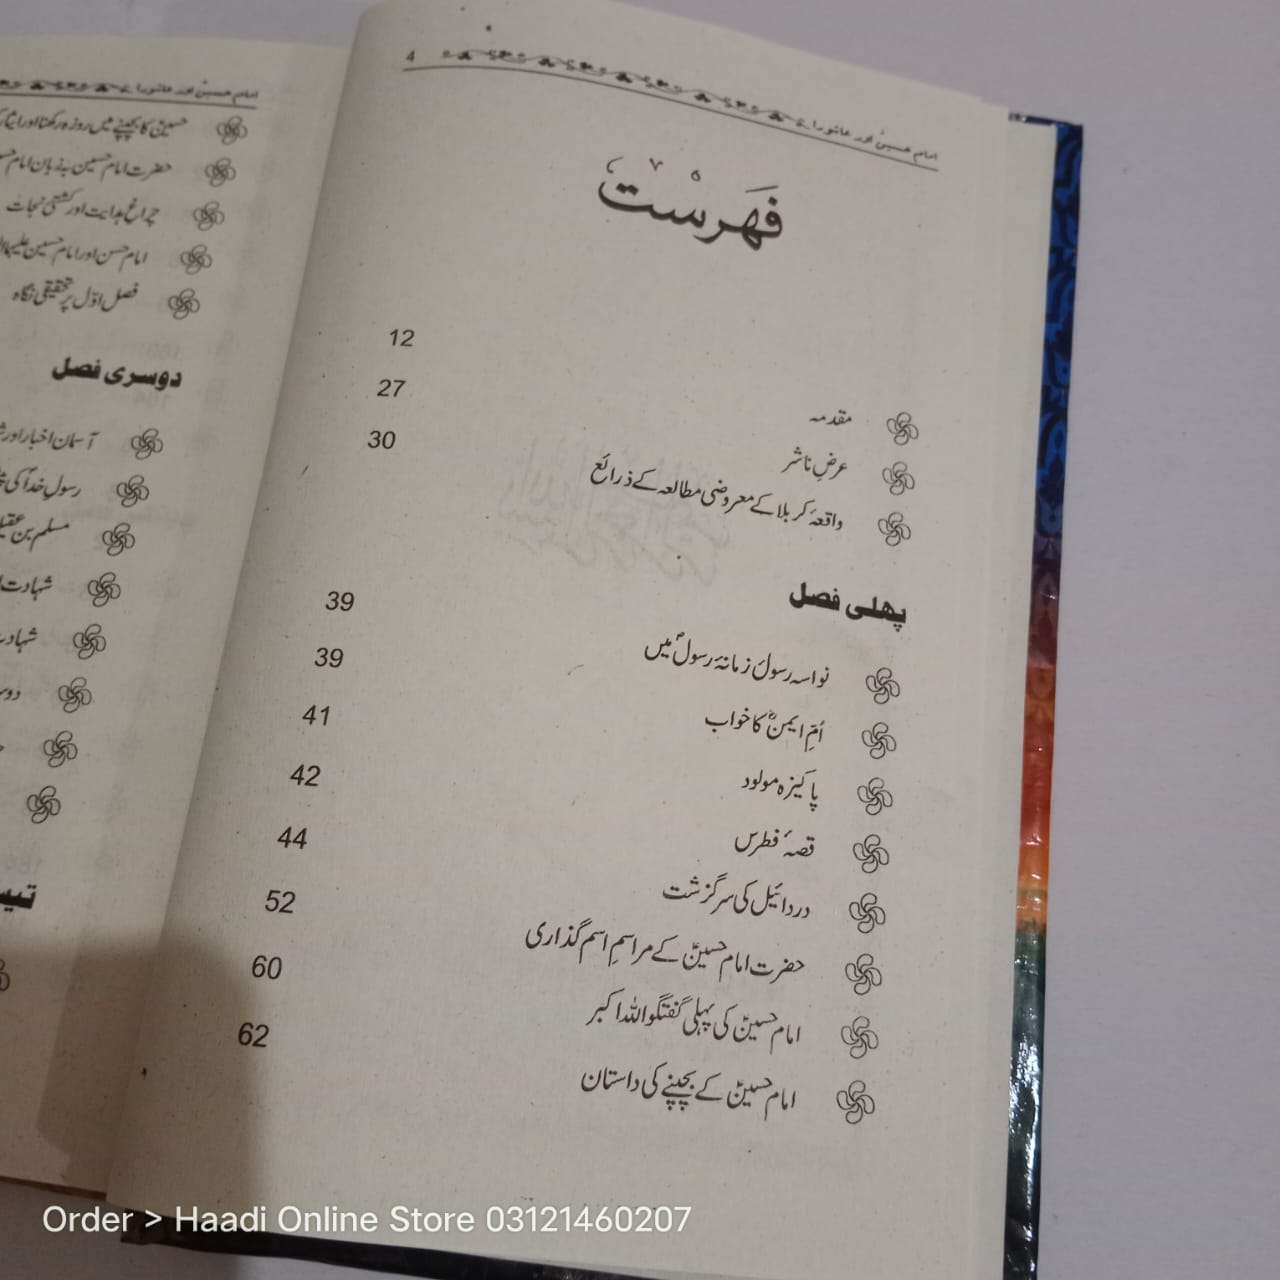 امام حسینؑ اور عاشورا 4
فہرست
مقدمہ 12
عرضِ ناشر 27
واقعۂ کربلا کے معروضی مطالعہ کے ذرائع 30
پہلی فصل
نواسہ رسولؐ زمانۂ رسولؐ میں 39
اُمِّ ایمنؓ کا خواب 39
پاکیزہ مولود 41
قصۂ فطرس 42
دردائیل کی سرگزشت 44
حضرت امام حسینؑ کے مراسمِ اسم گذاری 52
امام حسینؑ کی پہلی گفتگو اللہ اکبر 60
امام حسینؑ کے بچپنے کی داستان 62
امام حسینؑ اور عاشورا
حسینؑ کا بچپنے میں روزہ رکھنا اور
حضرت امام حسینؑ بہ زبان امام
چراغِ ہدایت اور کشتئ نجات
امام حسن اور امام حسین
فصل اوّل پر تحقیقی نگاہ
دوسری فصل
آسمان اخبار اور
رسولِ خداؐ کی
مسلم بن
شہادت
Order > Haadi Online Store 03121460207